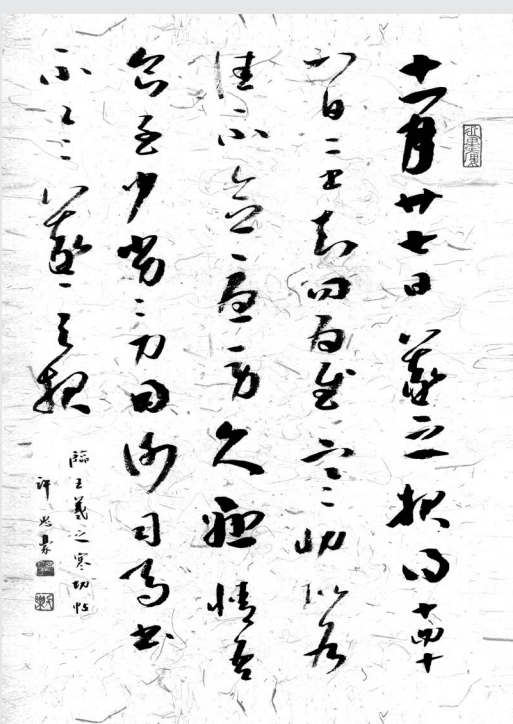 十一月廿七日羲之報得十四十
八日二書知問為慰寒切比各
佳不念憂勞久懸情吾
食至少劣劣力因謝司馬書
不一一羲之報
臨王羲之寒切帖